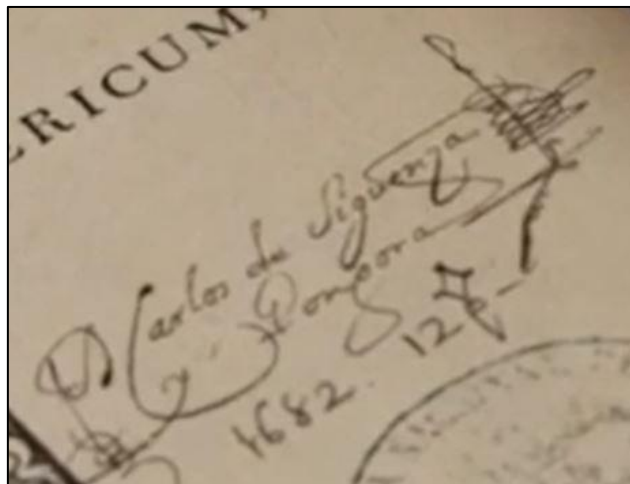 ERICUM,
D Carlos de Siguenza
y Gongora
1682.